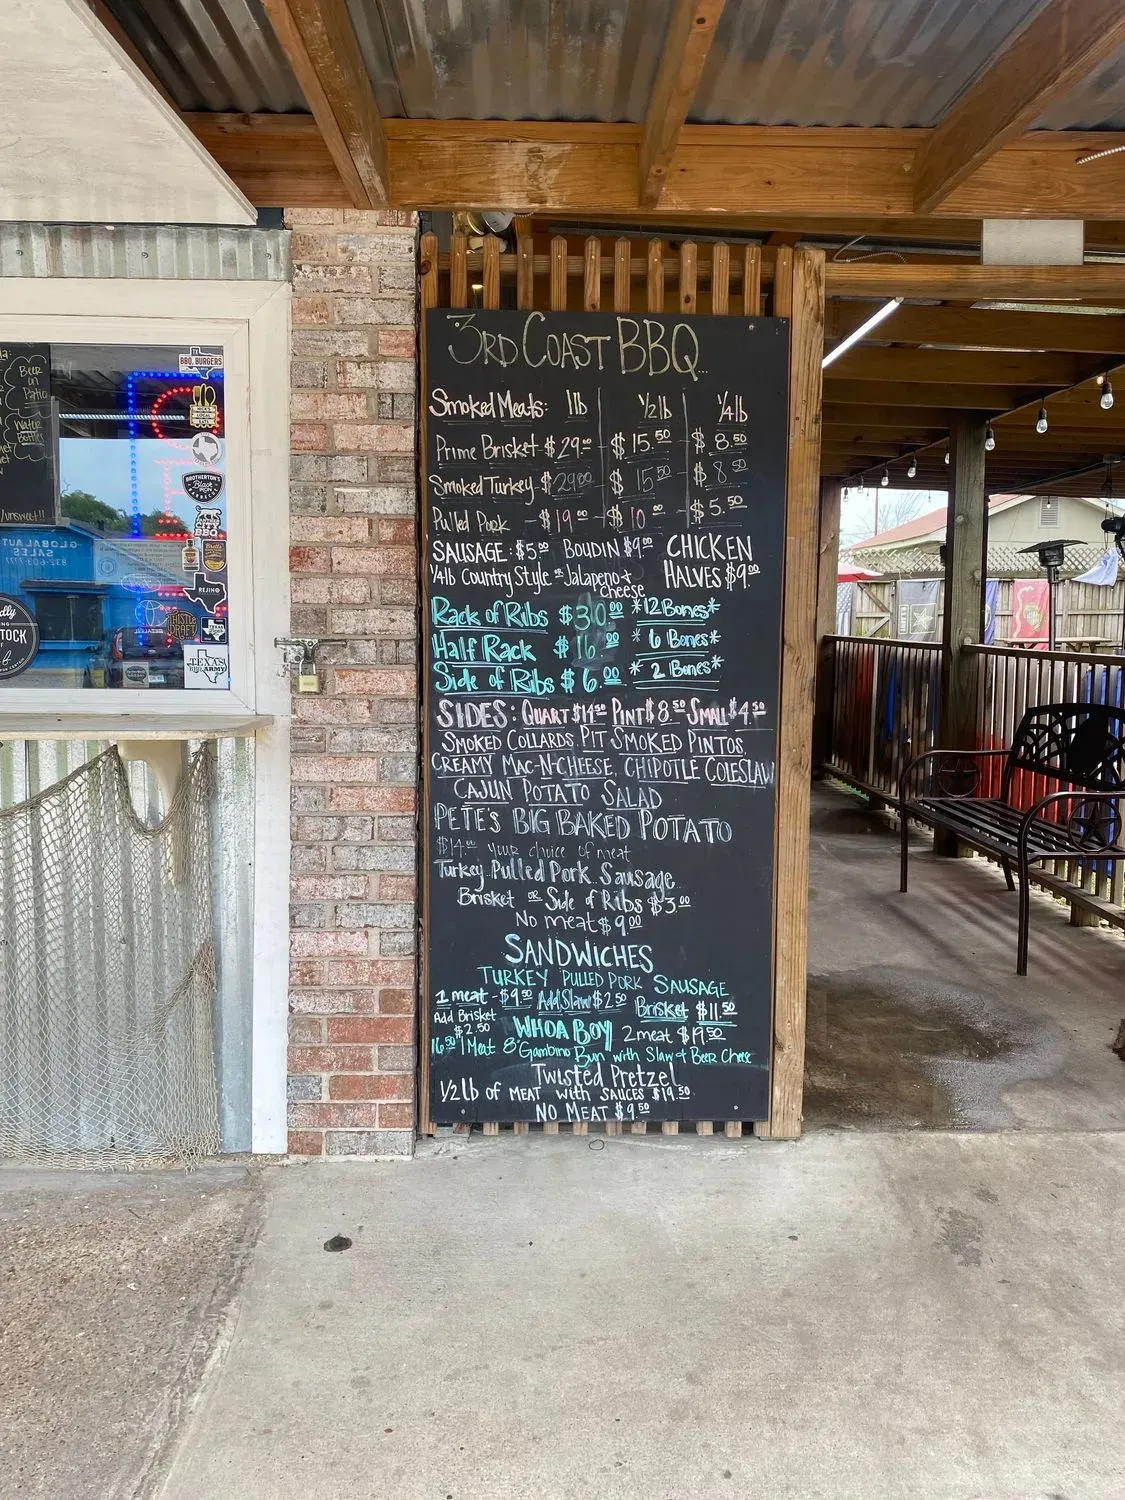 3RD COAST BBQ
Smoked Meats: 1lb 1/2lb 1/4lb
Prime Brisket - $29.00 $15.50 $8.50
Smoked Turkey $29.00 $15.50 $8.50
Pulled Pork - $19.00 $10.00 $5.50
SAUSAGE: $5.00 BOUDIN $9.00 CHICKEN
1/4lb Country Style or Jalapeno + cheese HALVES $9.00
Rack of Ribs $30.00 *12 Bones*
Half Rack $16.00 * 6 Bones*
Side of Ribs $6.00 * 2 Bones*
SIDES: QUART $14.50 PINT $8.50 SMALL $4.50
SMOKED COLLARDS, PIT SMOKED PINTOS,
CREAMY MAC-N-CHEESE, CHIPOTLE COLESLAW
CAJUN POTATO SALAD
PETE'S BIG BAKED POTATO
$14.00 your choice of meat
Turkey Pulled Pork Sausage
Brisket or Side of Ribs $3.00
No meat $9.00
SANDWICHES
TURKEY PULLED PORK SAUSAGE
1 meat - $9.50 Add Slaw $2.50 Brisket $11.50
Add Brisket $2.50 WHOA BOY 2 meat $19.50
16.50 1 Meat 8" Gambino Bun with Slaw & Beer Cheese
Twisted Pretzel
1/2lb of MEAT with SAUCES $19.50
NO MEAT $9.50
Beer
on
Patio
Water
Bottles
/unsweet!!
BBQ, BURGERS
BROTHERTON'S
Black
CITY
BBQ
REJINO
THISTLE
DRAFT
TEXAS
BBQ ARMY
GLOBAL AUTO
SALES
832-603-7777
STOCK